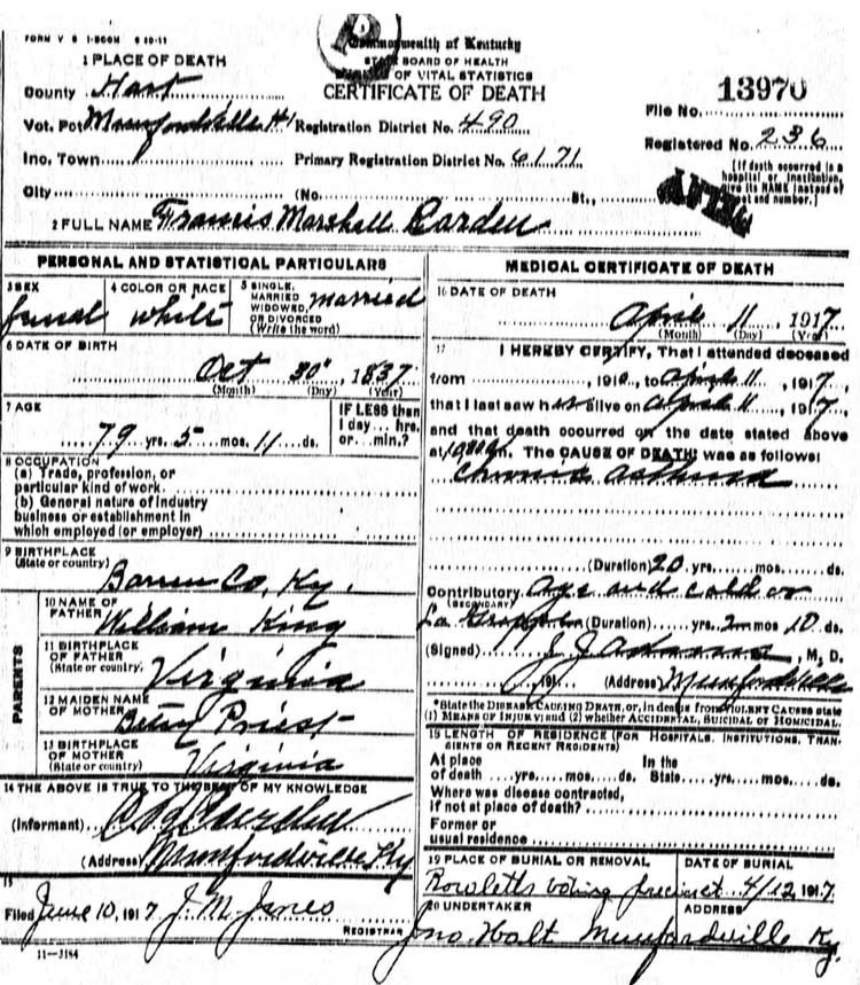 FORM V S 1-500M 6 10-11
Commonwealth of Kentucky
STATE BOARD OF HEALTH
BUREAU OF VITAL STATISTICS
CERTIFICATE OF DEATH
1 PLACE OF DEATH
County Hart
Vot. Pct Munfordville #1
Ino. Town
City
Registration District No. 490
Primary Registration District No. 6171
(No. St.,
13970
File No.
Registered No. 236
[If death occurred in a
hospital or institution,
give its NAME instead of
street and number.]
2 FULL NAME Francis Marshall Rarden
PERSONAL AND STATISTICAL PARTICULARS
3 SEX
femal
4 COLOR OR RACE
white
5 SINGLE,
MARRIED
WIDOWED,
OR DIVORCED
(Write the word)
married
6 DATE OF BIRTH
Oct 30, 1837
(Month) (Day) (Year)
7 AGE
79 yrs. 5 mos. 11 ds.
IF LESS than
1 day... hrs.
or... min.?
8 OCCUPATION
(a) Trade, profession, or
particular kind of work
(b) General nature of industry
business or establishment in
which employed (or employer)
9 BIRTHPLACE
(State or country)
Barren Co, Ky.
PARENTS
10 NAME OF
FATHER
William King
11 BIRTHPLACE
OF FATHER
(State or country)
Virginia
12 MAIDEN NAME
OF MOTHER
Betsy Priest
13 BIRTHPLACE
OF MOTHER
(State or country)
Virginia
14 THE ABOVE IS TRUE TO THE BEST OF MY KNOWLEDGE
(Informant)
(Address) Munfordville Ky
15
Filed June 10, 1917 J. M. Janes
REGISTRAR
11-3184
MEDICAL CERTIFICATE OF DEATH
16 DATE OF DEATH
April 11, 1917
(Month) (Day) (Year)
17 I HEREBY CERTIFY, That I attended deceased
from , 191 , to April 11, 1917,
that I last saw her alive on April 11, 1917,
and that death occurred on the date stated above
at m. The CAUSE OF DEATH was as follows:
chronic asthma
(Duration) 20 yrs. mos. ds.
Contributory age and cold or
(SECONDARY)
La Grippe (Duration) yrs. mos 10 ds.
(Signed) J. J. Adams, M, D.
191 (Address) Munfordville
*State the DISEASE CAUSING DEATH, or, in deaths from VIOLENT CAUSES state
(1) MEANS OF INJURY; and (2) whether ACCIDENTAL, SUICIDAL or HOMICIDAL.
18 LENGTH OF RESIDENCE (FOR HOSPITALS, INSTITUTIONS, TRAN-
SIENTS OR RECENT RESIDENTS)
At place
of death yrs. mos. ds.
In the
State yrs. mos. ds.
Where was disease contracted,
if not at place of death?
Former or
usual residence
19 PLACE OF BURIAL OR REMOVAL
Rowletts voting precinct
DATE OF BURIAL
4/12, 1917
20 UNDERTAKER
Jno. Holt
ADDRESS
Munfordville Ky.